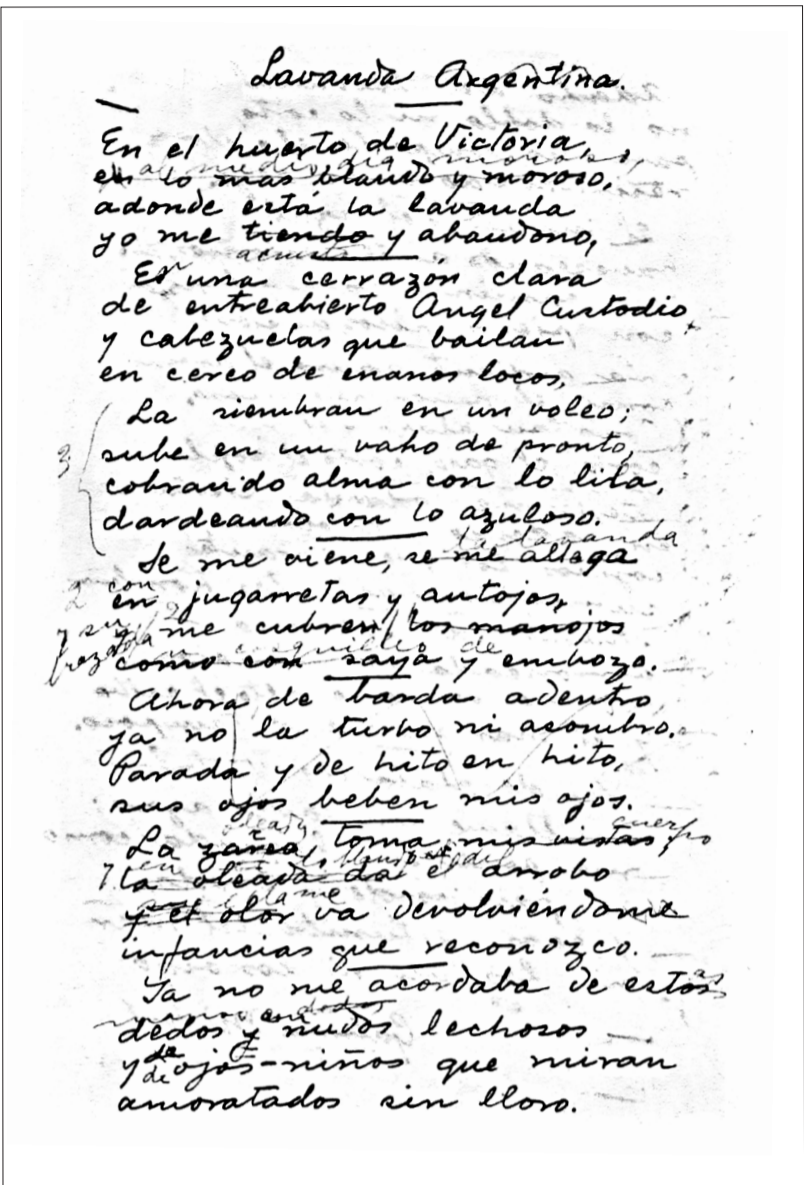 Lavanda Argentina.
En el huerto de Victoria,
al mediodía moroso,
en lo mas blando y moroso,
adonde está la lavanda
yo me tiendo y abandono,
acuesto
Es una cerrazón clara
de entreabierto Angel Custodio
y cabezuelas que bailan
en cerco de enanos locos,
La siembran en un voleo;
3 sube en un vaho de pronto,
cobrando alma con lo lila,
dardeando con lo azuloso.
la lavanda
Se me viene, se me allega
2 con
en jugarretas y antojos,
y su me cubren los manojos
frezada de
como con saya y embozo.
Ahora de barda adentro
ya no la turbo ni asombro.
Parada y de hito en hito,
sus ojos beben mis ojos.
oleada cuerpo
La zarea toma mis vistas,
en
7 la oleada da el arrobo
me
y el olor va devolviéndome
infancias que reconozco.
Ya no me acordaba de estos
as
manos
dedos y nudos lechosos
de
y de ojos-niños que miran
amoratados sin lloro.